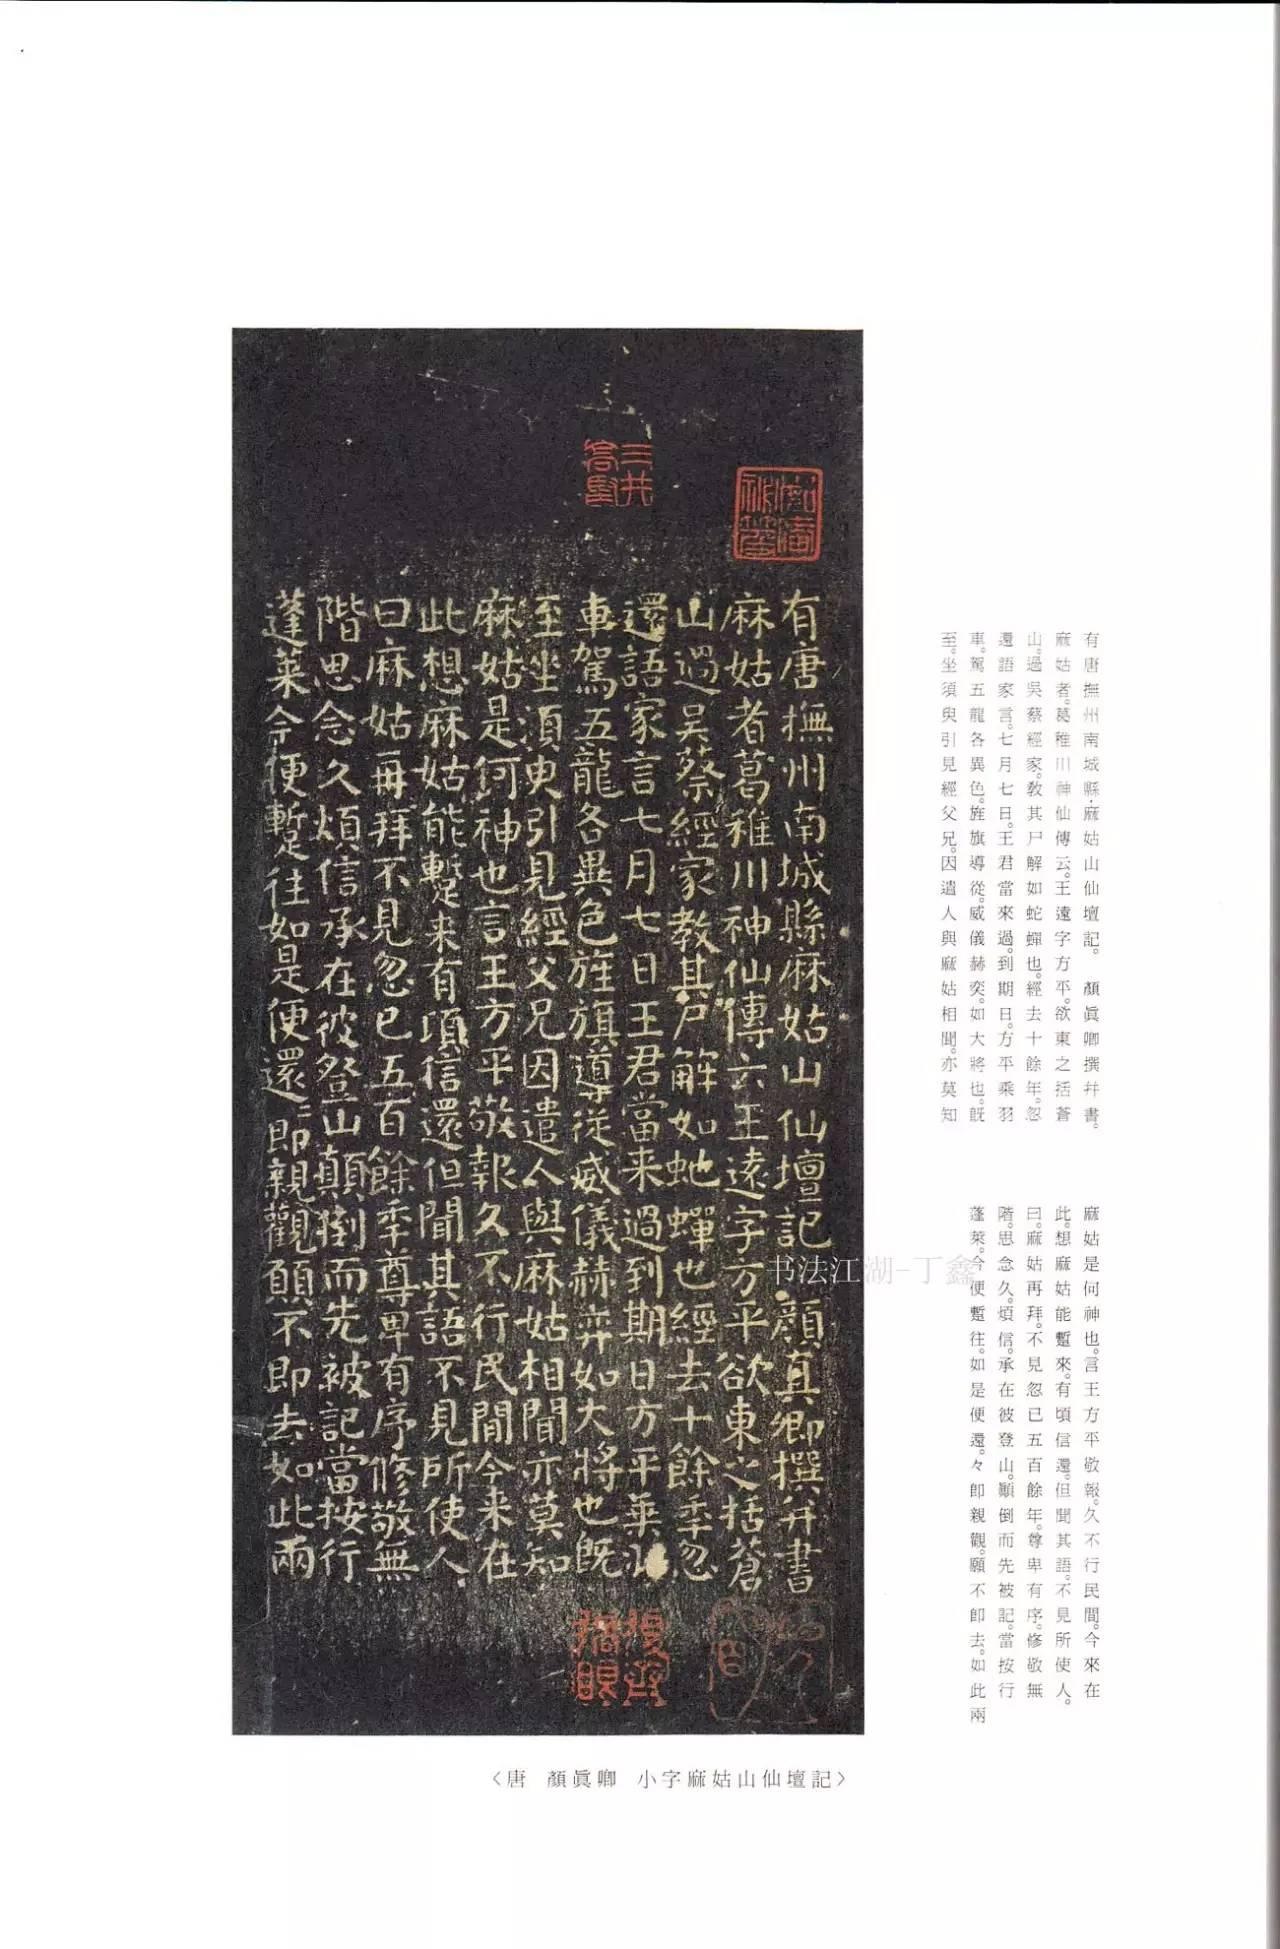 有唐撫州南城縣麻姑山仙壇記。顏眞卿撰幷書。
麻姑者。葛稚川神仙傳云。王遠字方平。欲東之括蒼
山。過吳蔡經家。敎其尸解如蛇蟬也。經去十餘年。忽
還語家言。七月七日。王君當來過。到期日。方平乘羽
車。駕五龍各異色。旌旗導從。威儀赫奕。如大將也。旣
至。坐須臾引見經父兄。因遣人與麻姑相聞。亦莫知
麻姑是何神也。言王方平敬報。久不行民間。今來在
此。想麻姑能蹔來。有頃信還。但聞其語。不見所使人。
曰。麻姑再拜。不見忽已五百餘年。尊卑有序。修敬無
階。思念久。煩信。承在彼登山。顚倒而先被記。當按行
蓬萊。今便蹔往。如是便還。々卽親觀。願不卽去。如此兩
有唐撫州南城縣麻姑山仙壇記顏真卿撰并書
麻姑者葛稚川神仙傳云王遠字方平欲東之括蒼
山過吳蔡經家教其尸解如虵蟬也經去十餘年忽
還語家言七月七日王君當来過到期日方平乗羽
車駕五龍各異色旌旗導從威儀赫弈如大將也既
至坐須臾引見經父兄因遣人與麻姑相聞亦莫知
麻姑是何神也言王方平敬報久不行民間今来在
此想麻姑能蹔来有頃信還但聞其語不見所使人
曰麻姑再拜不見忽已五百餘年尊卑有序修敬無
階思念久煩信承在彼登山顛倒而先被記當按行
蓬萊今便蹔往如是便還〻即親觀願不即去如此兩
书法江湖-丁鑫
〈唐 顏眞卿 小字麻姑山仙壇記〉